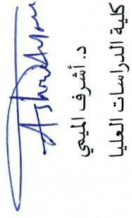 د. أشرف الميمي
كلية الدراسات العليا